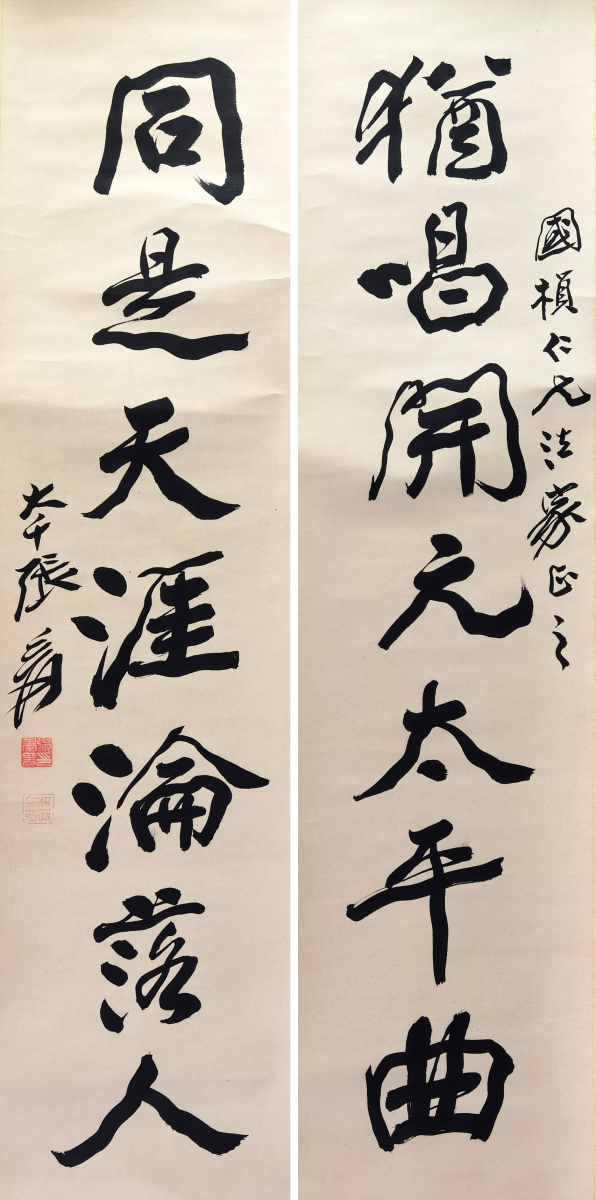 國楨仁兄法家正之
猶唱開元太平曲
同是天涯淪落人
大千張爰